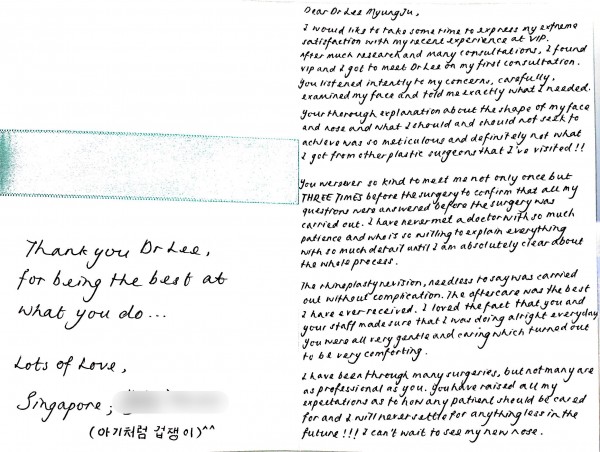 Thank you Dr Lee,
for being the best at
what you do...
Lots of Love,
Singapore,
(아기처럼 겁쟁이)^^
Dear Dr Lee Myung Ju,
I would like to take some time to express my extreme
satisfaction with my recent experience at VIP.
After much research and many consultations, I found
vip and I got to meet Dr Lee on my first consultation.
You listened intently to my concerns, carefully,
examined my face and told me exactly what I needed.
Your thorough explanation about the shape of my face
and nose and what I should and should not seek to
achieve was so meticulous and definitely not what
I got from other plastic surgeons that I've visited!!
You were so kind to meet me not only once but
THREE TIMES before the surgery to confirm that all my
questions were answered before the surgery was
carried out. I have never met a doctor with so much
patience and who's so willing to explain everything
with so much detail until I am absolutely clear about
the whole process.
The rhinoplasty revision, needless to say was carried
out without complication. The aftercare was the best
I have ever received. I loved the fact that you and
your staff made sure that I was doing alright everyday
You were all very gentle and caring which turned out
to be very comforting.
I have been through many surgeries, but not many are
as professional as you. you have raised all my
expectations as to how any patient should be cared
for and I will never settle for anything less in the
future!!! I can't wait to see my new nose.